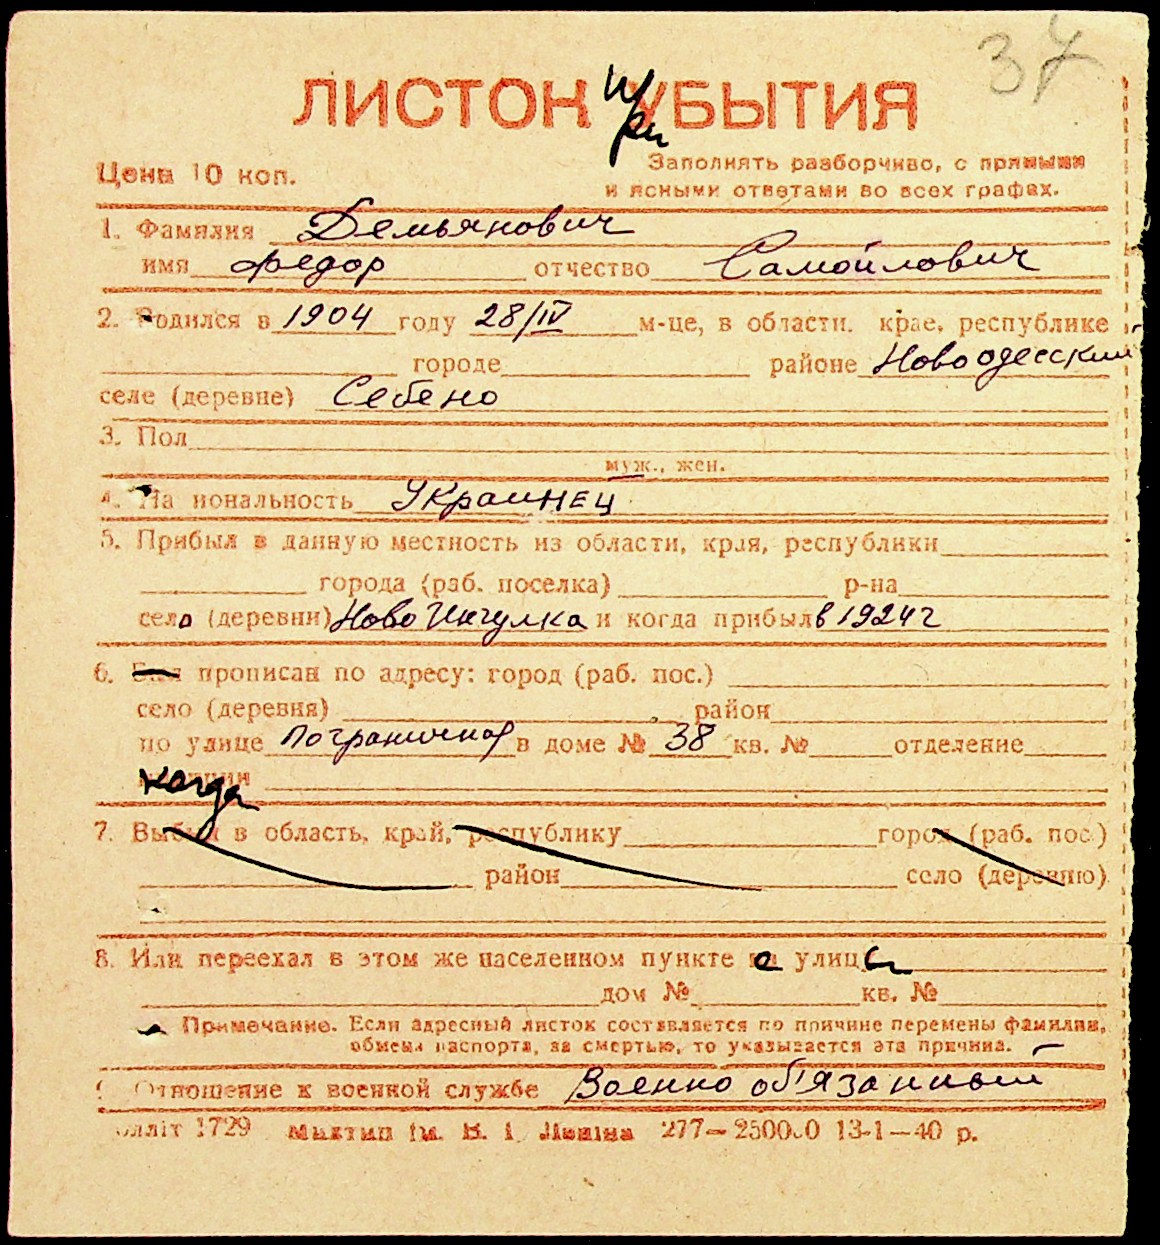 37
ЛИСТОК УБЫТИЯ
при
Цена 10 коп.
Заполнять разборчиво, с прямыми
и ясными ответами во всех графах.
1. Фамилия Демьянович
имя Федор отчество Самойлович
2. Родился в 1904 году 28/IV м-це, в области, крае, республике
городе районе Новоодесский
селе (деревне) Себено
3. Пол
муж., жен.
4. На иональность Украинец
5. Прибыл в данную местность из области, края, республики
города (раб. поселка) р-на
село (деревни) Ново Ингулка и когда прибыл в 1924 г
6. Был прописан по адресу: город (раб. пос.)
село (деревня) район
по улице Пограничная в доме № 38 кв. № отделение
когда
7. Выбыл в область, край, республику город (раб. пос.)
район село (деревню)
8. Или переехал в этом же населенном пункте с улицы
дом № кв. №
Примечание. Если адресный листок составляется по причине перемены фамилии,
обмена паспорта, за смертью, то указывается эта причина.
9. Отношение к военной службе Военно об'язанный
олліт 1729 Миктип ім. В. І. Леніна 277—250000 13-1—40 р.